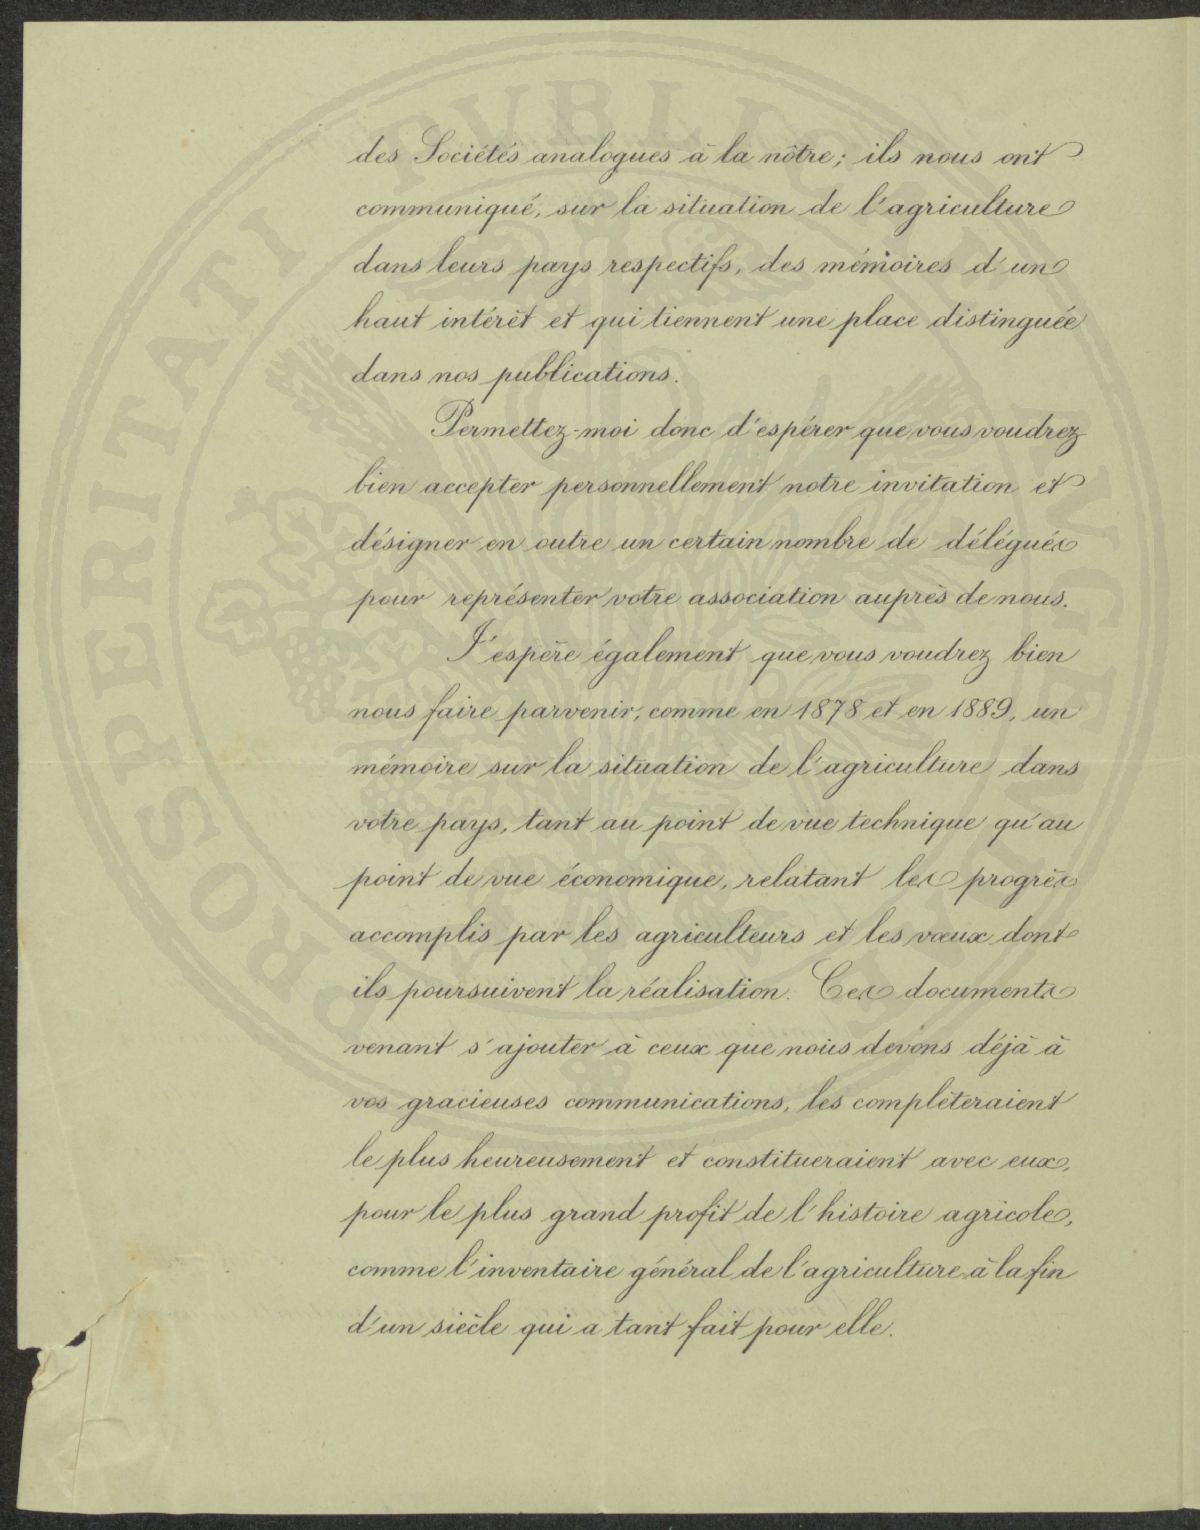 des Sociétés analogues à la nôtre; ils nous ont
communiqué, sur la situation de l'agriculture
dans leurs pays respectifs, des mémoires d'un
haut intérêt et qui tiennent une place distinguée
dans nos publications.
Permettez-moi donc d'espérer que vous voudrez
bien accepter personnellement notre invitation et
désigner en outre un certain nombre de délégués
pour représenter votre association auprès de nous.
J'espère également que vous voudrez bien
nous faire parvenir, comme en 1878 et en 1889, un
mémoire sur la situation de l'agriculture dans
votre pays, tant au point de vue technique qu'au
point de vue économique, relatant les progrès
accomplis par les agriculteurs et les vœux dont
ils poursuivent la réalisation. Ces documents
venant s'ajouter à ceux que nous devons déjà à
vos gracieuses communications, les complèteraient
le plus heureusement et constitueraient avec eux,
pour le plus grand profit de l'histoire agricole,
comme l'inventaire général de l'agriculture à la fin
d'un siècle qui a tant fait pour elle.
PROSPERITATI PUBLICAE